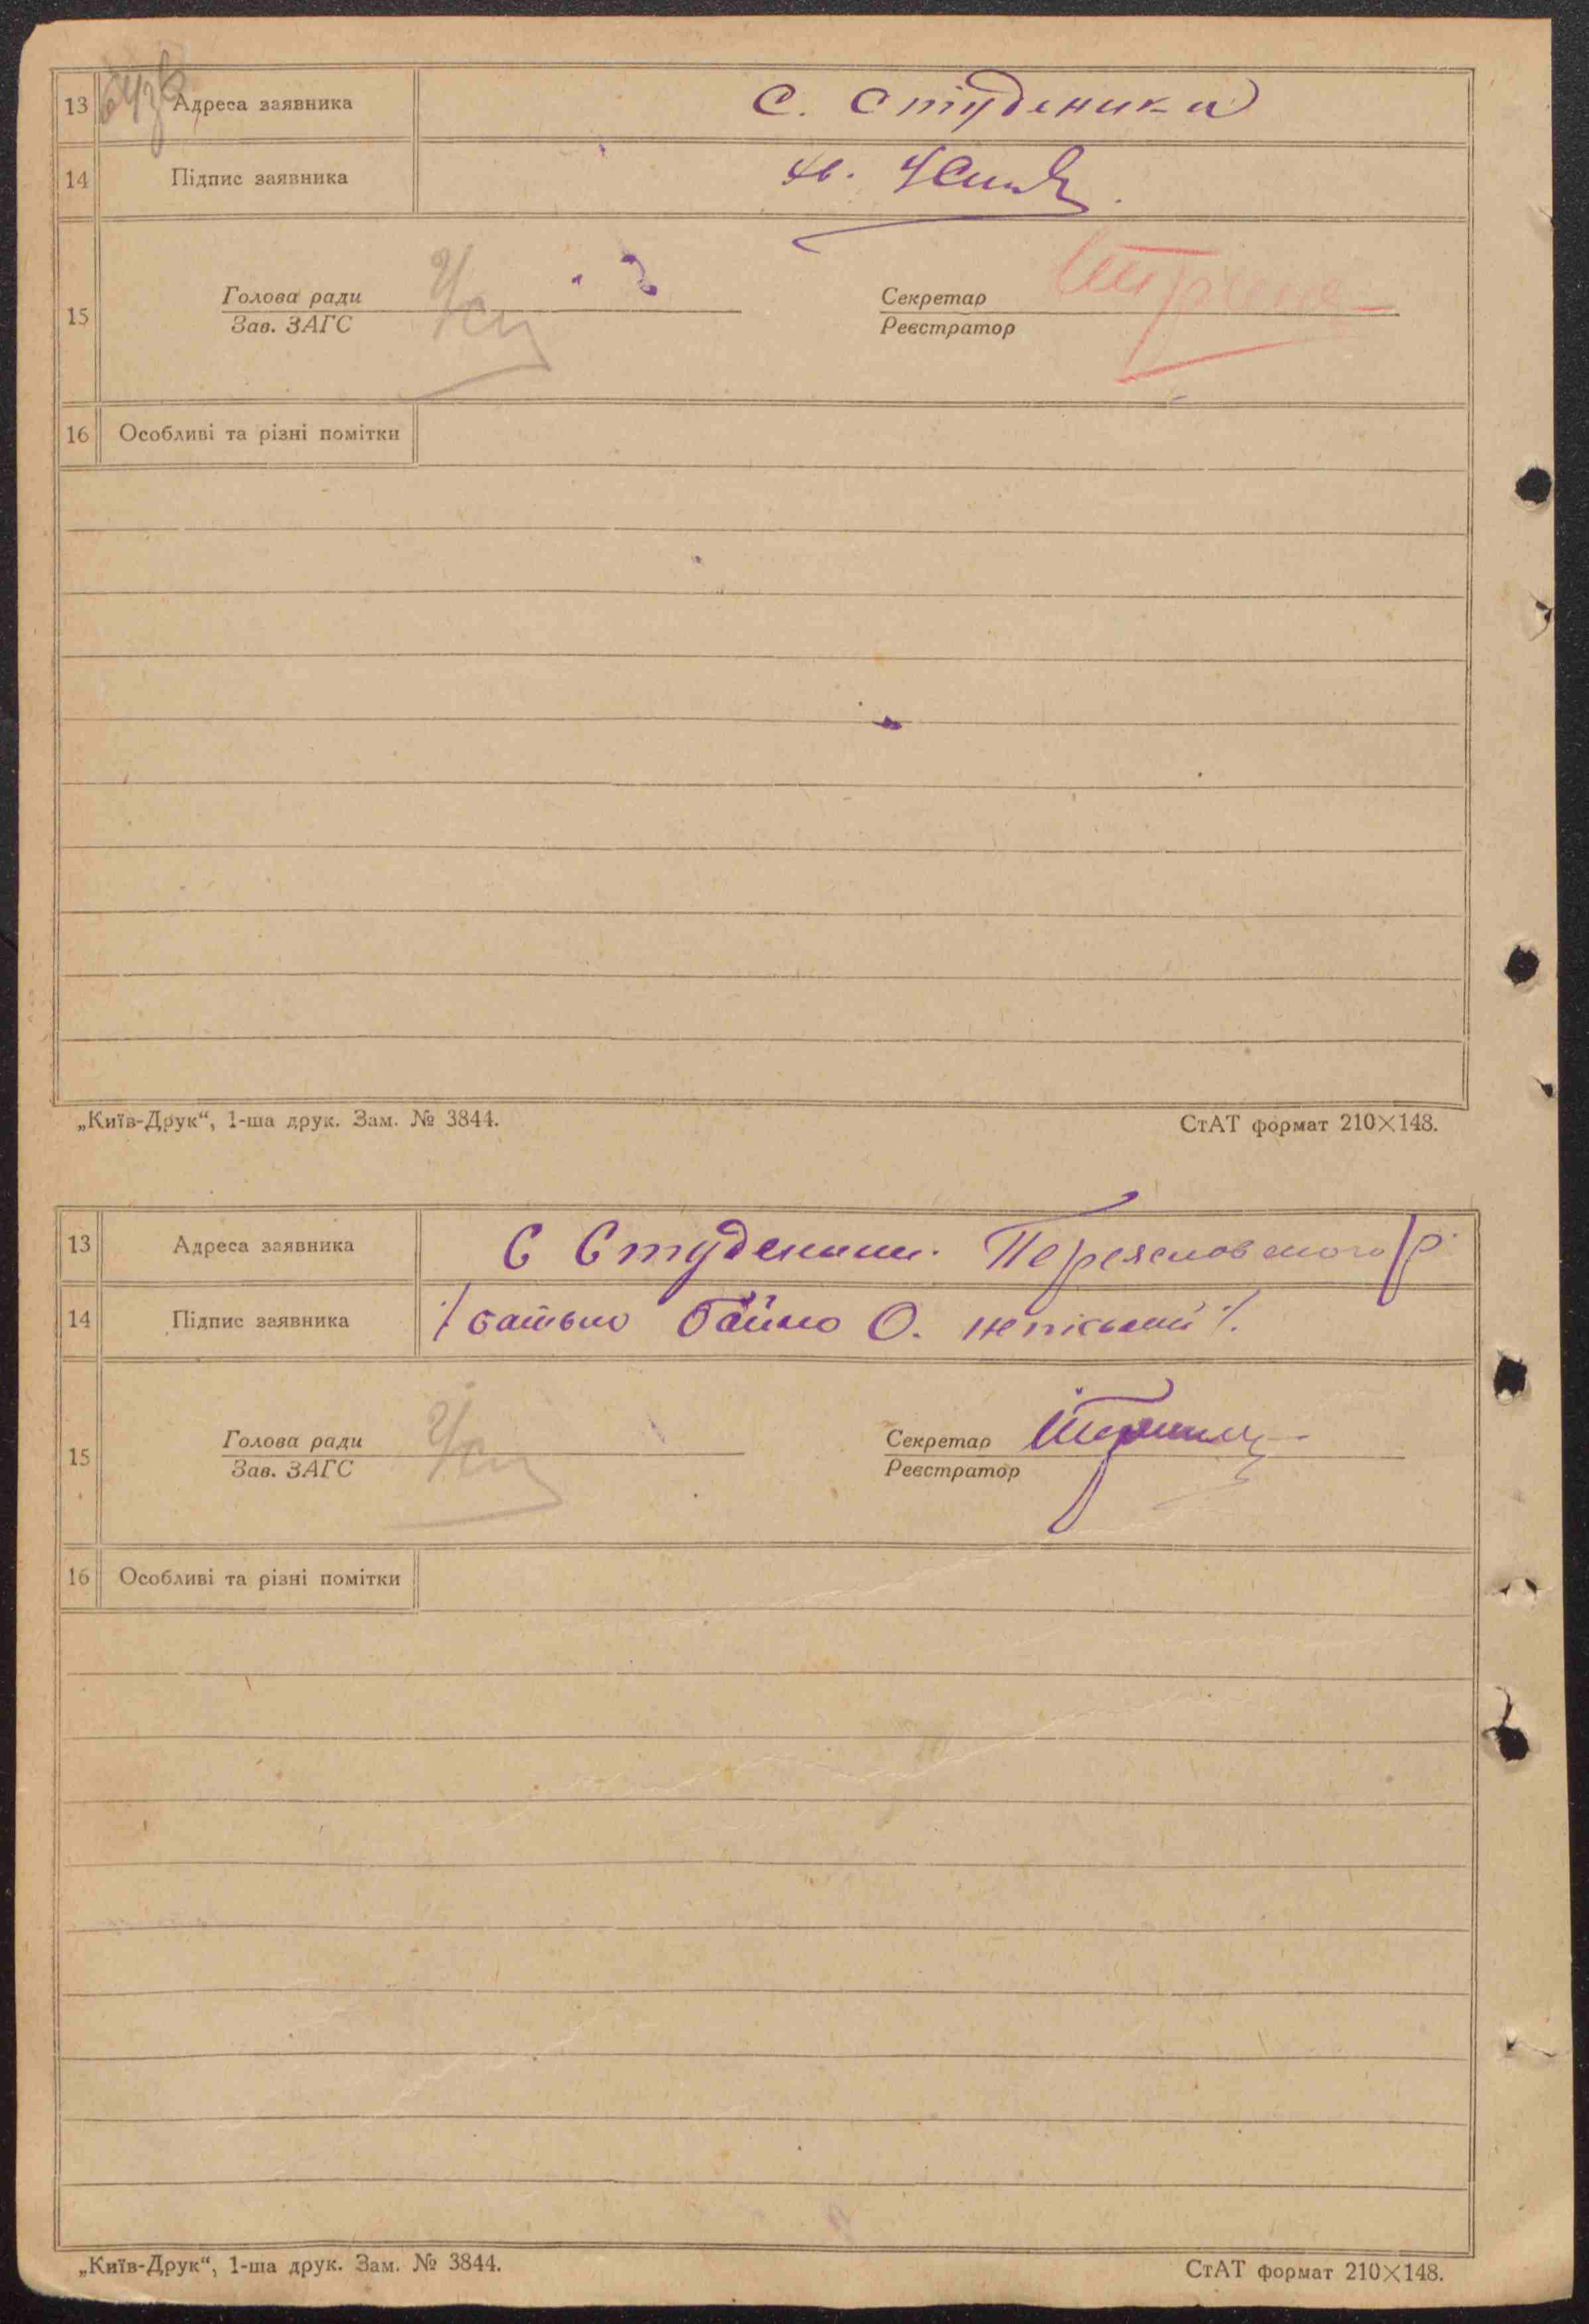 13 Адреса заявника С. Студеники
14 Підпис заявника
15 Голова ради Секретар
Зав. ЗАГС Реєстратор
16 Особливі та різні помітки
„Київ-Друк“, 1-ша друк. Зам. № 3844. СтАТ формат 210×148.
13 Адреса заявника С Студеники. Переясловського р.
14 Підпис заявника /батько Байло О. непісьмений/.
15 Голова ради Секретар
Зав. ЗАГС Реєстратор
16 Особливі та різні помітки
„Київ-Друк“, 1-ша друк. Зам. № 3844. СтАТ формат 210×148.